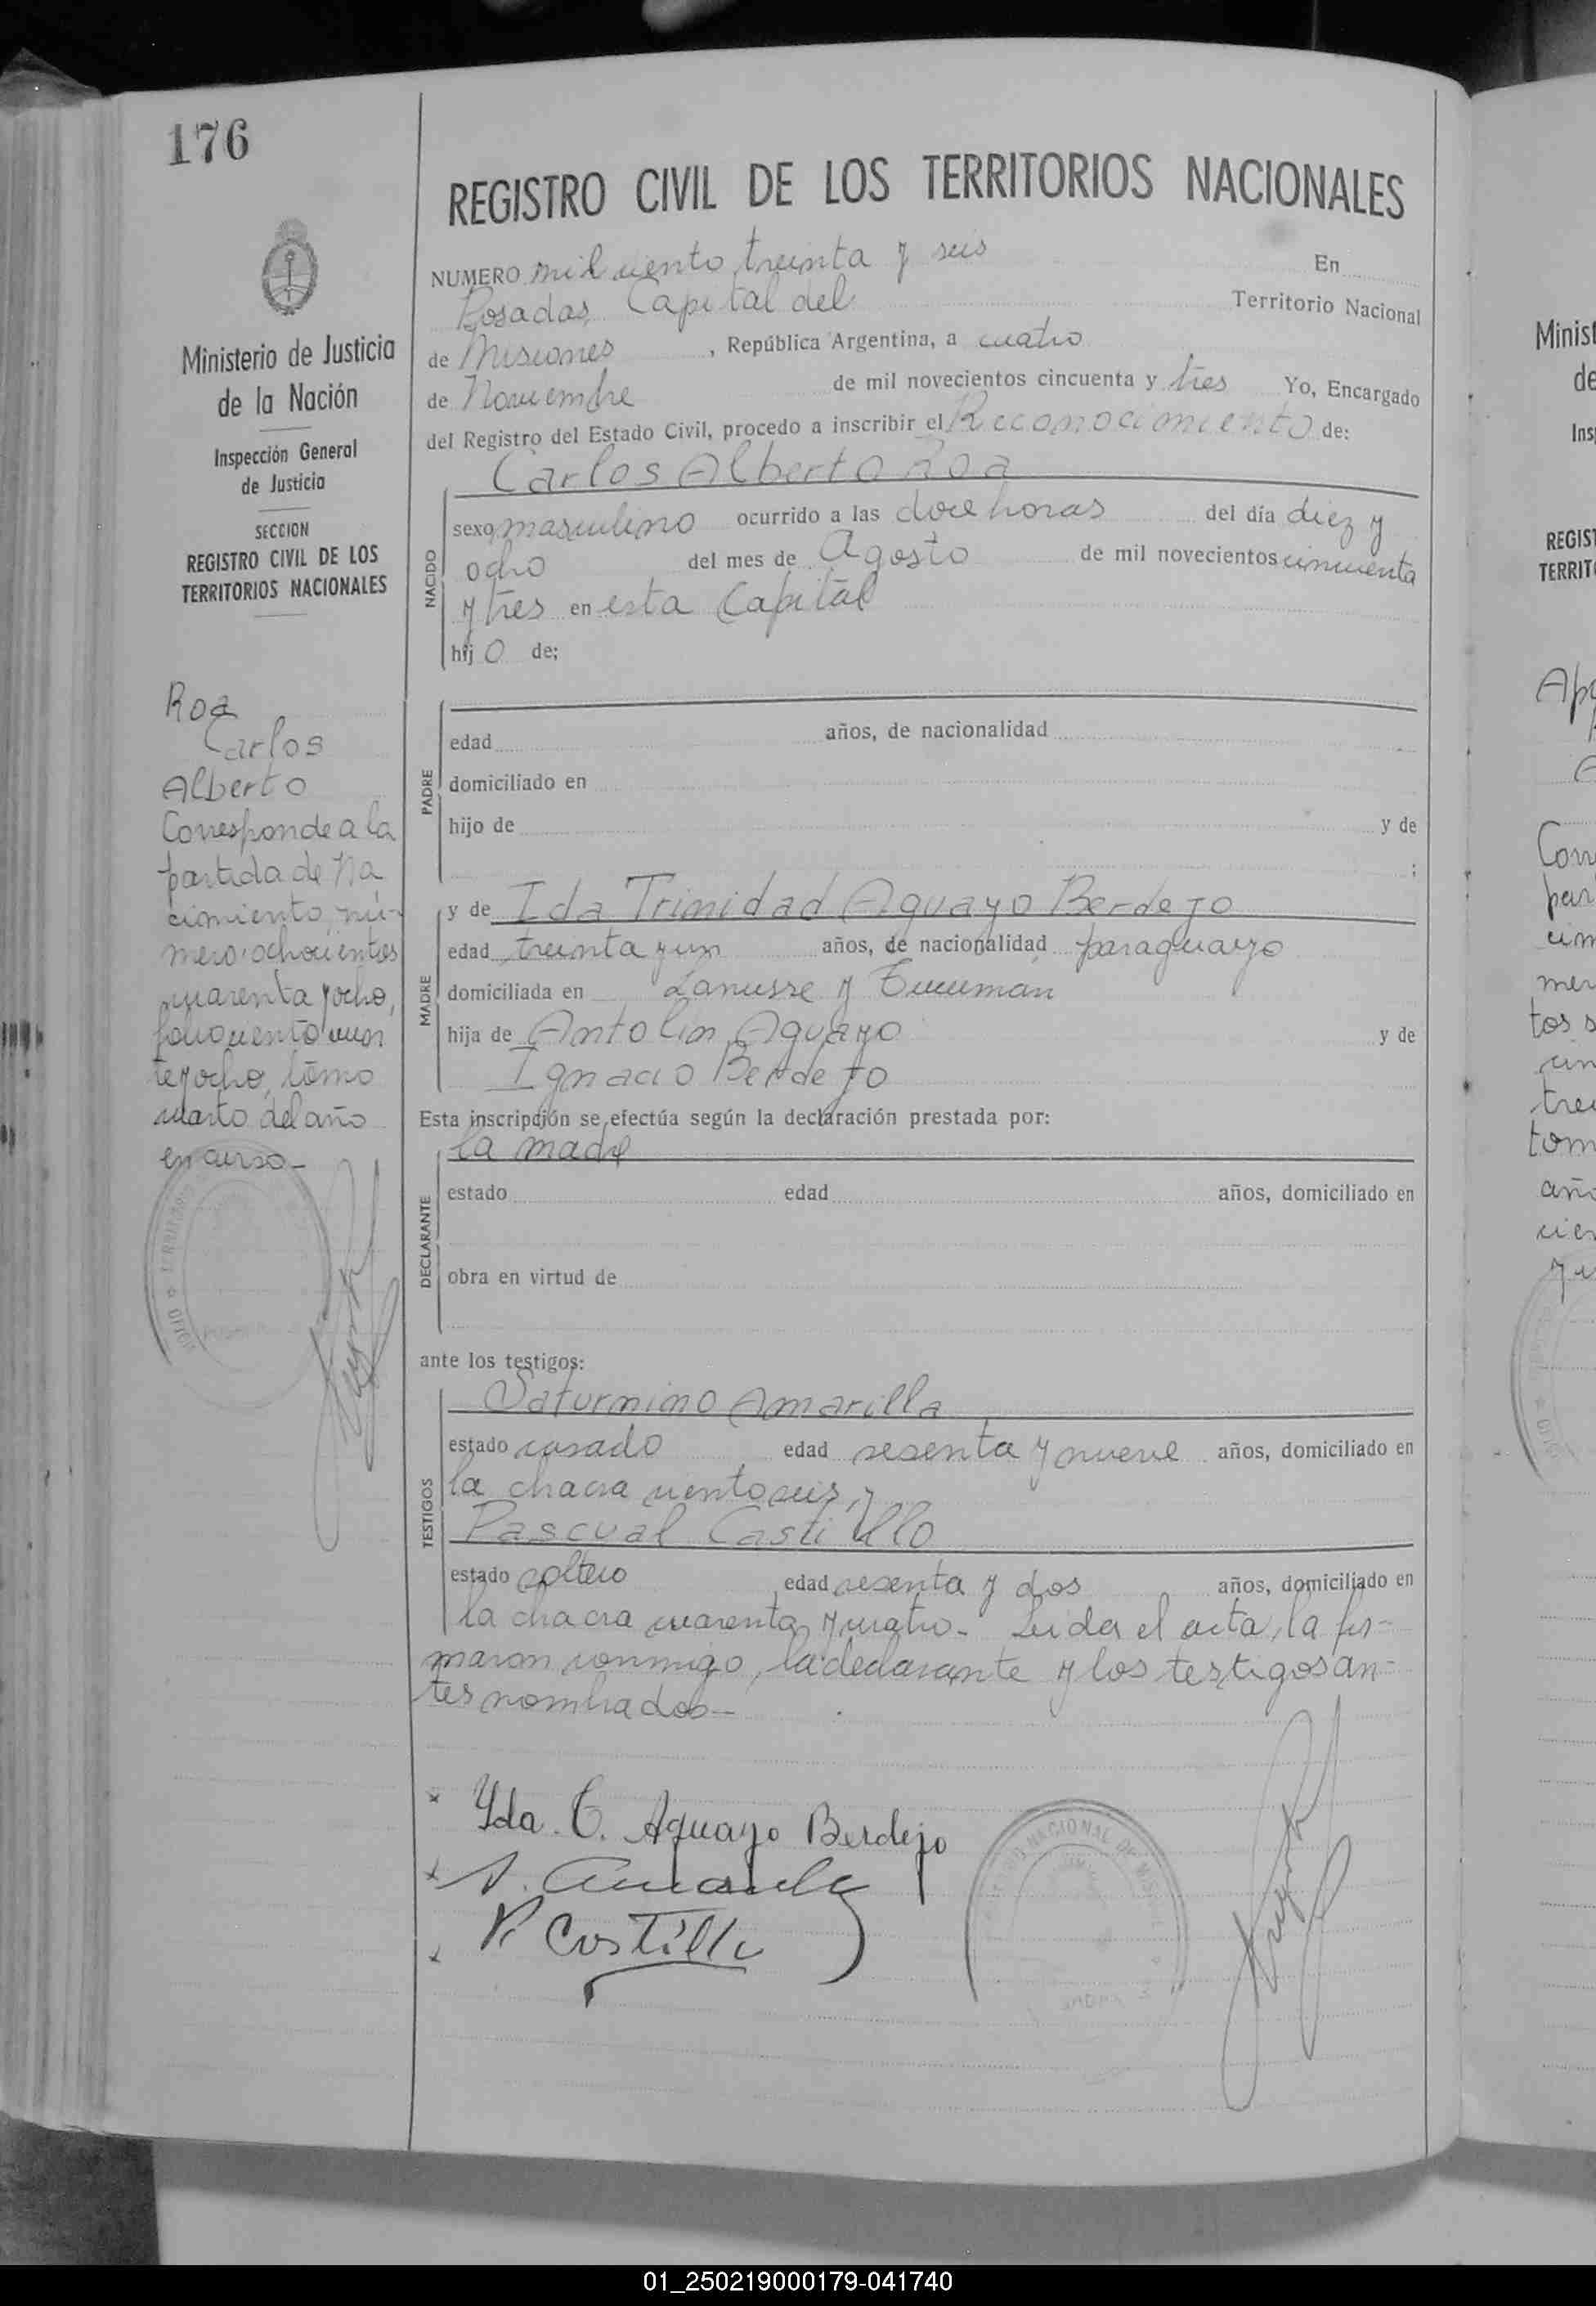 176
REGISTRO CIVIL DE LOS TERRITORIOS NACIONALES
Ministerio de Justicia
de la Nación
Inspección General
de Justicia
SECCION
REGISTRO CIVIL DE LOS
TERRITORIOS NACIONALES
Roa
Carlos
Alberto
Corresponde a la
partida de Na
cimiento, nú-
mero ochocientos
cuarenta y ocho,
folio ciento vein
te y ocho, tomo
cuarto del año
en curso-
NUMERO mil ciento treinta y seis En
Posadas, Capital del Territorio Nacional
de Misiones, República Argentina, a cuatro
de Noviembre de mil novecientos cincuenta y tres Yo, Encargado
del Registro del Estado Civil, procedo a inscribir el Reconocimiento de:
Carlos Alberto Roa
NACIDO
sexo masculino ocurrido a las doce horas del día diez y
ocho del mes de Agosto de mil novecientos cincuenta
y tres en esta Capital
hij o de;
PADRE
edad años, de nacionalidad
domiciliado en
hijo de y de
;
MADRE
y de Ida Trinidad Aguayo Berdejo
edad treinta y un años, de nacionalidad paraguayo
domiciliada en Lanusse y Tucumán
hija de Antolin Aguayo y de
Ignacio Berdejo
Esta inscripción se efectúa según la declaración prestada por:
la madre
DECLARANTE
estado edad años, domiciliado en
obra en virtud de
ante los testigos:
TESTIGOS
Saturnino Amarilla
estado casado edad sesenta y nueve años, domiciliado en
la chacra ciento seis, y
Pascual Castillo
estado soltero edad sesenta y dos años, domiciliado en
la chacra cuarenta y cuatro- Leida el acta, la fir-
maron conmigo, la declarante y los testigos an-
tes nombrados-
Yda. T. Aguayo Berdejo
S. Amarilla
P. Castillo
NACIONAL DE MIS
Minist
de
Ins
REGIST
TERRIT
Corr
par
cim
mer
tos s
tre
tom
año
cien
01_250219000179-041740